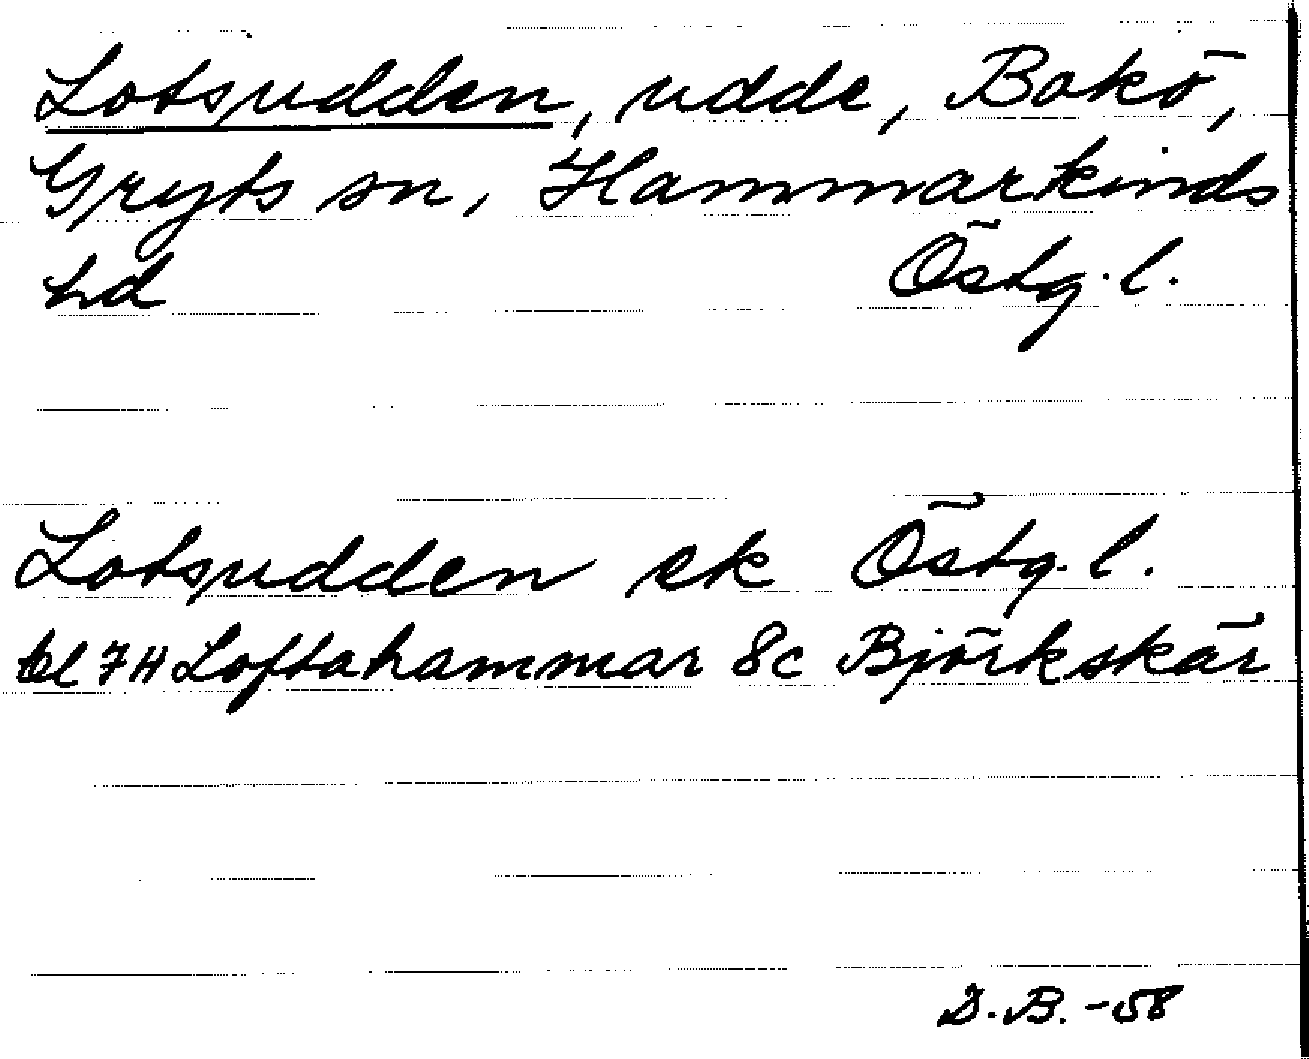 Lotsudden, udde, Bokö,
Gryts sn, Hammarkinds
hd Östg. l.
Lotsudden ek Östg. l.
bl 7H Loftahammar 8c Björkskär
D.B. -58